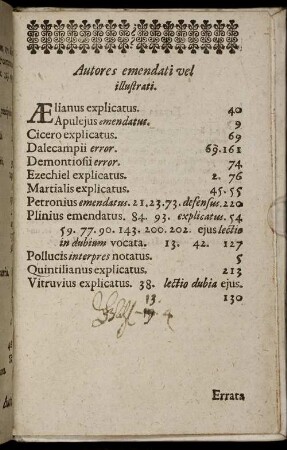 Autores emendati vel
illustrati.
Ælianus explicatus. 40
Apulejus emendatus. 9
Cicero explicatus. 69
Dalecampii error. 69.161
Demontiosii error. 74
Ezechiel explicatus. 2. 76
Martialis explicatus. 45. 55
Petronius emendatus. 21.23.73. defensus. 220
Plinius emendatus. 84. 93. explicatus. 54
59. 77. 90. 143. 200. 202. ejus lectio
in dubium vocata. 13. 42. 127
Pollucis interpres notatus. 5
Quintilianus explicatus. 213
Vitruvius explicatus. 38. lectio dubia ejus.
130
13.
Errata